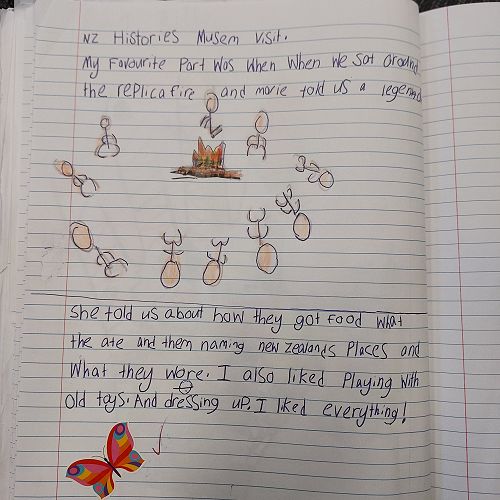 NZ Histories Musem Visit.
My Favourite Part Was When When We Sat around
the replica fire and marie told us a legend
She told us about how they got Food What
the ate and them naming new zealands Places and
What they wore. I also liked Playing With
Old toys. And dressing up. I liked everything!